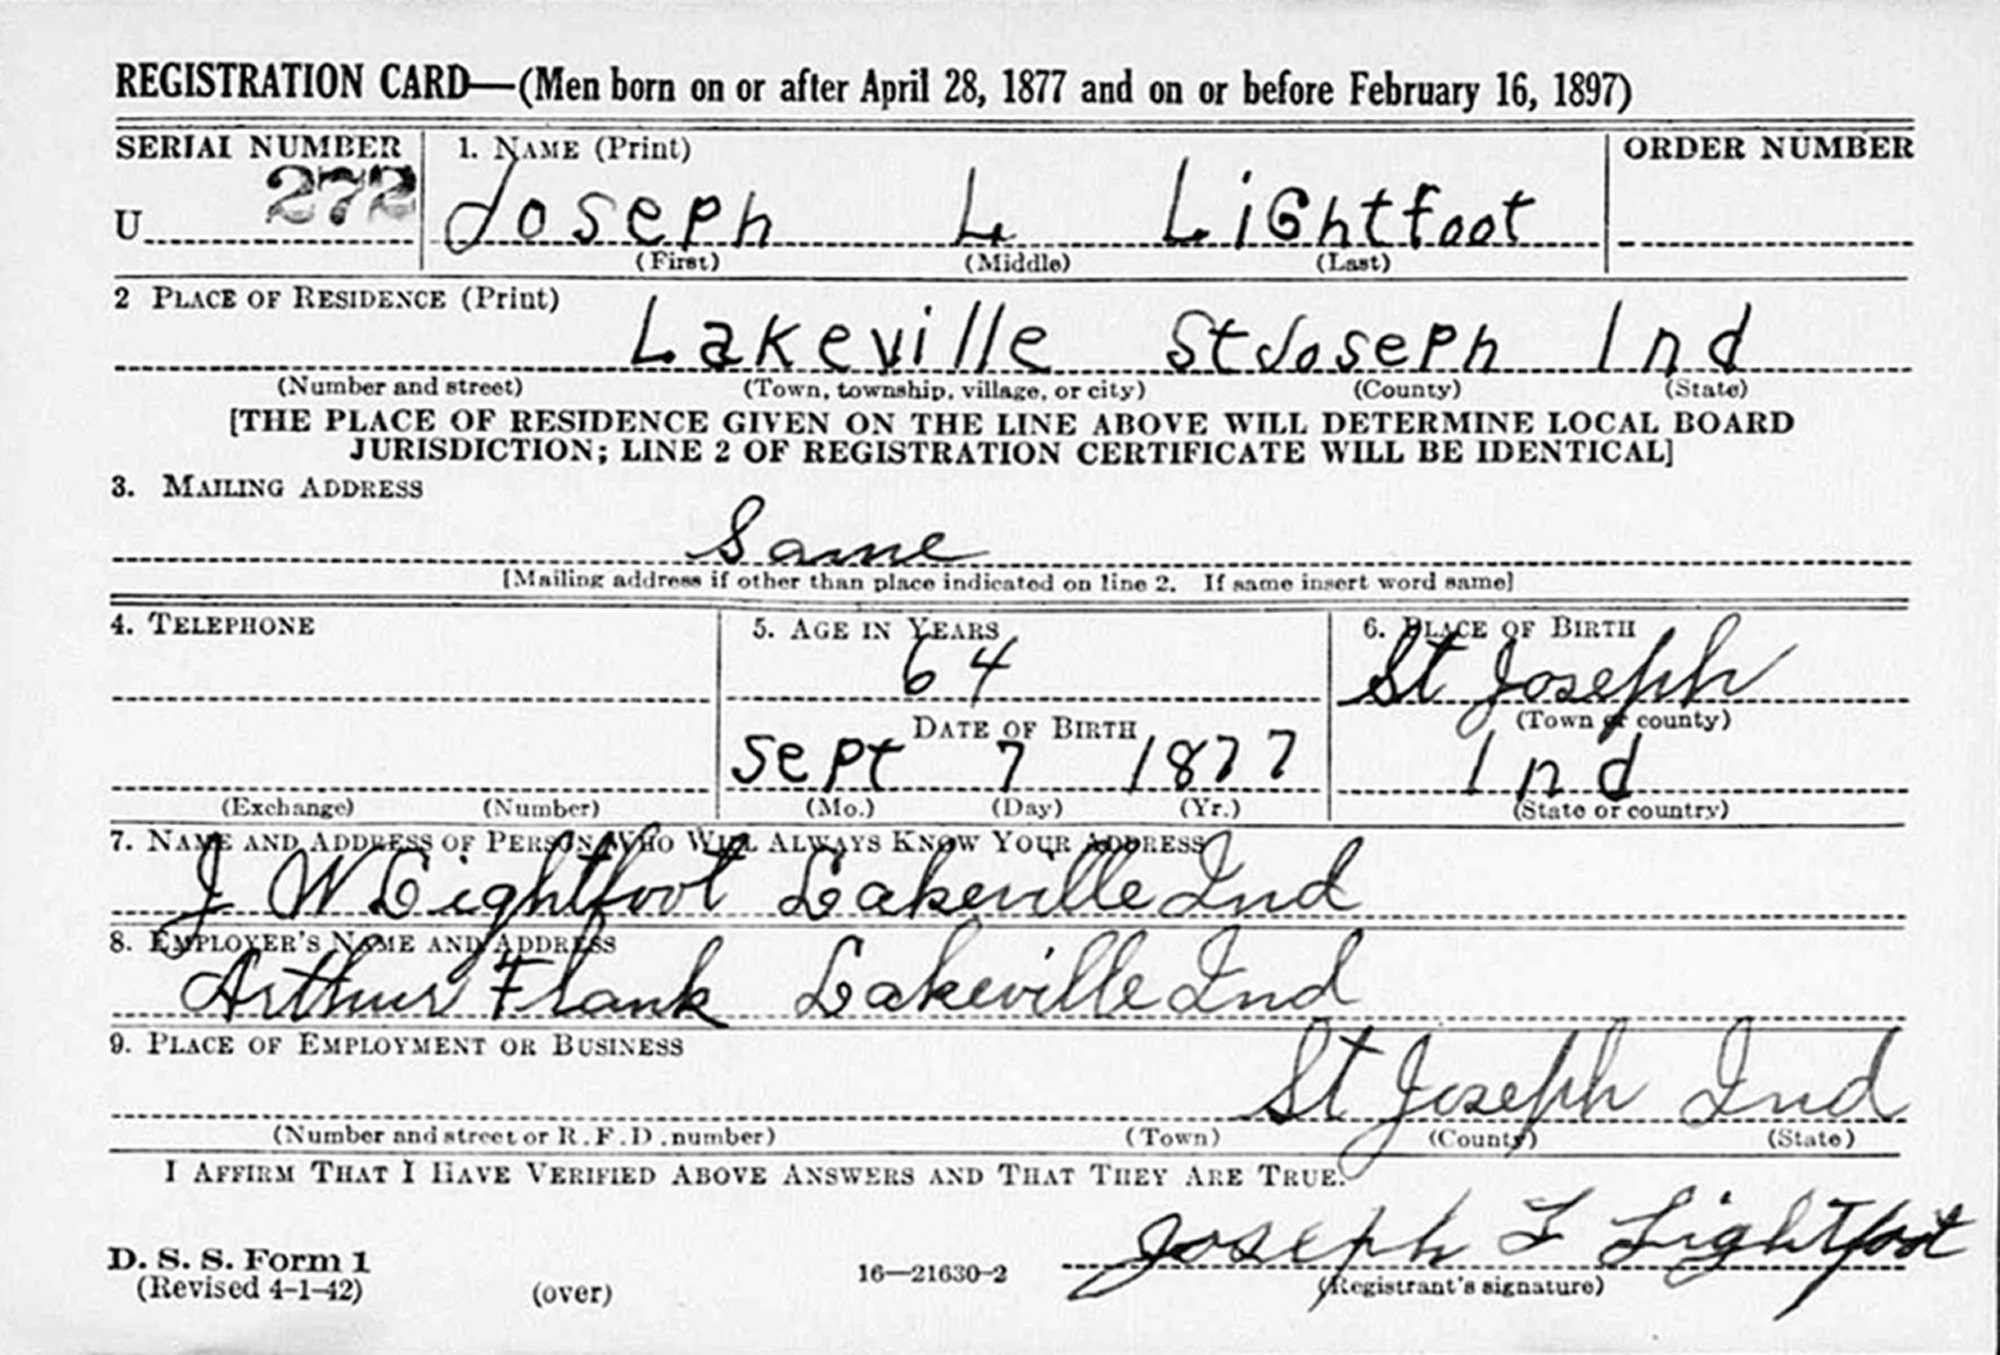 REGISTRATION CARD—(Men born on or after April 28, 1877 and on or before February 16, 1897)
SERIAL NUMBER 1. NAME (Print) ORDER NUMBER
U 272 Joseph L Lightfoot
(First) (Middle) (Last)
2 PLACE OF RESIDENCE (Print)
Lakeville St Joseph Ind
(Number and street) (Town, township, village, or city) (County) (State)
[THE PLACE OF RESIDENCE GIVEN ON THE LINE ABOVE WILL DETERMINE LOCAL BOARD
JURISDICTION; LINE 2 OF REGISTRATION CERTIFICATE WILL BE IDENTICAL]
3. MAILING ADDRESS
Same
[Mailing address if other than place indicated on line 2. If same insert word same]
4. TELEPHONE 5. AGE IN YEARS 6. PLACE OF BIRTH
64 St Joseph
DATE OF BIRTH (Town or county)
Sept 7 1877 Ind
(Exchange) (Number) (Mo.) (Day) (Yr.) (State or country)
7. NAME AND ADDRESS OF PERSON WHO WILL ALWAYS KNOW YOUR ADDRESS
J W Lightfoot Lakeville Ind
8. EMPLOYER'S NAME AND ADDRESS
Arthur Flank Lakeville Ind
9. PLACE OF EMPLOYMENT OR BUSINESS
St Joseph Ind
(Number and street or R. F. D. number) (Town) (County) (State)
I AFFIRM THAT I HAVE VERIFIED ABOVE ANSWERS AND THAT THEY ARE TRUE.
Joseph L Lightfoot
D. S. S. Form 1
(Revised 4-1-42) (over) 16—21630-2 (Registrant's signature)